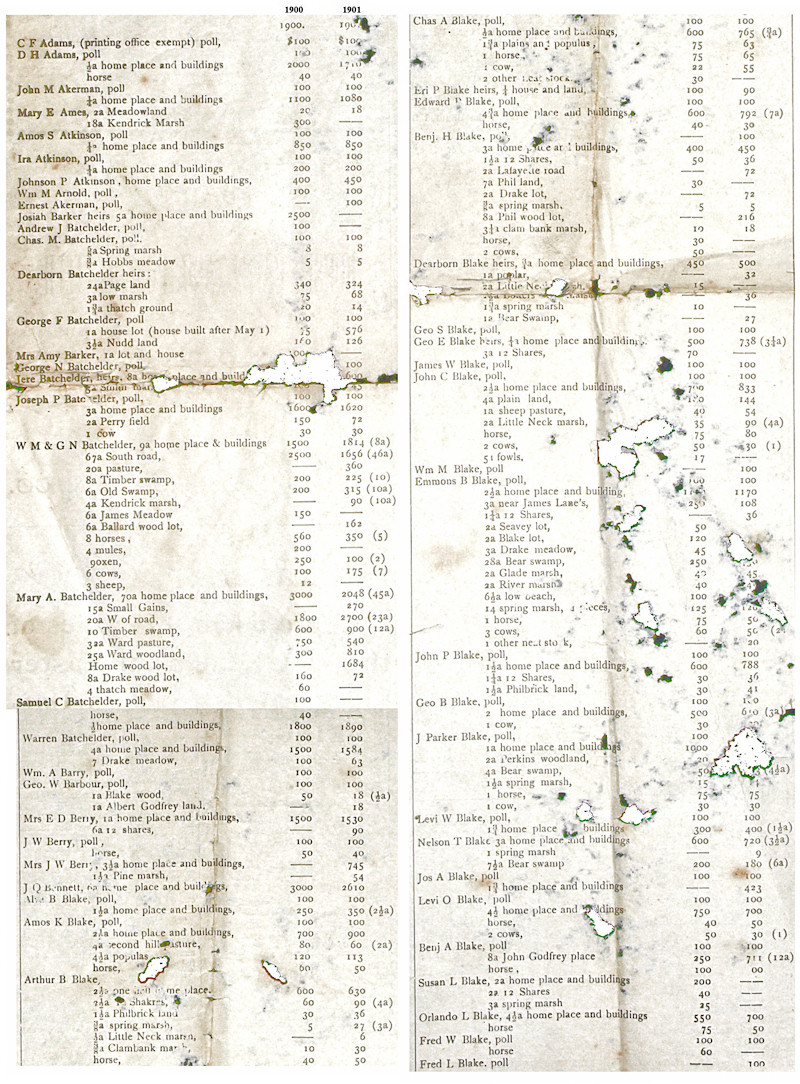 1900 1901
1900. 190
C F Adams, (printing office exempt) poll, $100 $100
D H Adams, poll 100
½a home place and buildings 2000 1710
horse 40 40
John M Akerman, poll 100 100
¼a home place and buildings 1100 1080
Mary E Ames, 2a Meadowland 20 18
18a Kendrick Marsh 300 ——
Amos S Atkinson, poll 100 100
home place and buildings 850 850
Ira Atkinson, poll, 100 100
home place and buildings 200 200
Johnson P Atkinson, home place and buildings, 400 450
Wm M Arnold, poll, 100 100
Ernest Akerman, poll, —— 100
Josiah Barker heirs 5a home place and buildings 2500 ——
Andrew J Batchelder, poll, 100 ——
Chas. M. Batchelder, poll. 100 100
Spring marsh 8 8
Hobbs meadow 5 5
Dearborn Batchelder heirs:
24a Page land 340 324
3a low marsh 75 68
thatch ground 20 14
George F Batchelder, poll 100 100
1a house lot (house built after May 1) 75 576
3½a Nudd land 160 126
Mrs Amy Barker, 1a lot and house
George N Batchelder, poll, 100
Jere Batchelder, heirs, 8a place and build
Joseph P Batchelder, poll, 100 100
3a home place and buildings 1600 1620
2a Perry field 150 72
1 cow 30 30
W M & G N Batchelder, 9a home place & buildings 1500 1814 (8a)
67a South road, 2500 1656 (46a)
20a pasture, —— 360
8a Timber swamp, 200 225 (10)
6a Old Swamp, 200 315 (10a)
4a Kendrick marsh, —— 90 (10a)
6a James Meadow 150 ——
6a Ballard wood lot, —— 162
8 horses, 560 350 (5)
4 mules, 200 ——
9oxen, 250 100 (2)
6 cows, 100 175 (7)
3 sheep, 12 ——
Mary A. Batchelder, 70a home place and buildings, 3000 2048 (45a)
15a Small Gains, —— 270
20a W of road, 1800 2700 (23a)
10 Timber swamp, 600 900 (12a)
32a Ward pasture, 750 540
25a Ward woodland, 300 810
Home wood lot, —— 1684
8a Drake wood lot, 160 72
4 thatch meadow, 60 ——
Samuel C Batchelder, poll, 100 ——
horse, 40 ——
home place and buildings, 1800 1890
Warren Batchelder, poll, 100 100
4a home place and buildings, 1500 1584
7 Drake meadow, 100 63
Wm. A Barry, poll, 100 100
Geo. W Barbour, poll, 100 100
1a Blake wood, 50 18 (½a)
1a Albert Godfrey land, —— 18
Mrs E D Berry, 1a home place and buildings, 1500 1530
6a 12 shares, —— 90
J W Berry, poll, 100 100
horse, 50 40
Mrs J W Berry, 3½a home place and buildings, —— 745
1½a Pine marsh, —— 54
J Q Bennett, 6a home place and buildings, 3000 2610
B Blake, poll, 100 100
1½a home place and buildings, 250 350 (2½a)
Amos K Blake, poll, 100 100
home place and buildings, 700 900
4a second hill pasture, 80 60 (2a)
4½a populas 120 113
horse, 60 50
Arthur B Blake,
2½a one half home place. 600 630
Shakres, 60 90 (4a)
1½a Philbrick land 30 36
spring marsh, 5 27 (3a)
Little Neck marsh, —— 6
Clambank marsh, 10 30
horse, 40 50
Chas A Blake, poll, 100 100
½a home place and buildings 600 765 (¾a)
1¾a plains and populus, 75 63
1 horse, 75 65
1 cow, 22 55
2 other neat stock 30 ——
Eri P Blake heirs, ½ house and land, 100 90
Edward P Blake, poll, 100 100
home place and buildings, 600 792 (7a)
horse, 40 30
Benj. H Blake, poll, —— 100
3a home place and buildings, 400 450
1½a 12 Shares, 50 36
2a Lafayette road —— 72
7a Phil land, 30 ——
2a Drake lot, —— 72
spring marsh, 5 5
8a Phil wood lot, —— 216
clam bank marsh, 10 18
horse, 30 ——
2 cows, 50 ——
Dearborn Blake heirs, home place and buildings, 450 500
1a poplar, —— 32
2a Little Neck marsh, 15 ——
—— 36
spring marsh 10 ——
1a Bear Swamp, —— 27
Geo S Blake, poll, 100 100
Geo E Blake heirs, home place and building, 500 738 (3¼a)
3a 12 Shares, 70 ——
James W Blake, poll, 100 100
John C Blake, poll, 100 100
2½a home place and buildings, 700 833
4a plain land, 144
1a sheep pasture, 40 54
2a Little Neck marsh, 35 90 (4a)
horse, 75 80
2 cows, 50 30 (1)
51 fowls, 17 ——
Wm M Blake, poll —— 100
Emmons B Blake, poll, 100 100
2½a home place and building, 1170
3a near James Lane's, 250 108
1¼a 12 Shares, —— 36
2a Seavey lot, 50
2a Blake lot, 120
3a Drake meadow, 45
28a Bear swamp, 250
2a Glade marsh, 45
2a River marsh 40
6½a low beach, 100
14 spring marsh, pieces, 125
1 horse, 75
3 cows, 60
1 other neat stock, —— 20
John P Blake, poll, 100 100
1½a home place and buildings, 600 788
1¼a 12 Shares, 30 36
1½a Philbrick land, 30 41
Geo B Blake, poll, 100
2 home place and buildings, 500 (3a)
1 cow, 30
J Parker Blake, poll, 100
1a home place and buildings 1000
2a Perkins woodland,
4a Bear swamp, 50 (4½a)
1½a spring marsh, 15
1 horse, 75 75
1 cow, 30 30
Levi W Blake, poll, 100 100
1¾ home place buildings 300 400 (1½a)
Nelson T Blake 3a home place and buildings, 600 720 (3½a)
1 spring marsh —— 9
7½a Bear swamp 200 180 (6a)
Jos A Blake, poll 100 100
1¾ home place and buildings —— 423
Levi O Blake, poll, 100 100
4½ home place and buildings 750 700
horse, 40 50
2 cows, 50 30 (1)
Benj A Blake, poll 100 100
8a John Godfrey place 250 711 (12a)
horse, 100 00
Susan L Blake, 2a home place and buildings 200 ——
2a 12 Shares 40 ——
3a spring marsh 25 ——
Orlando L Blake, 4½a home place and buildings 550 700
horse 75 50
Fred W Blake, poll 100 100
horse 60 ——
Fred L Blake, poll —— 100